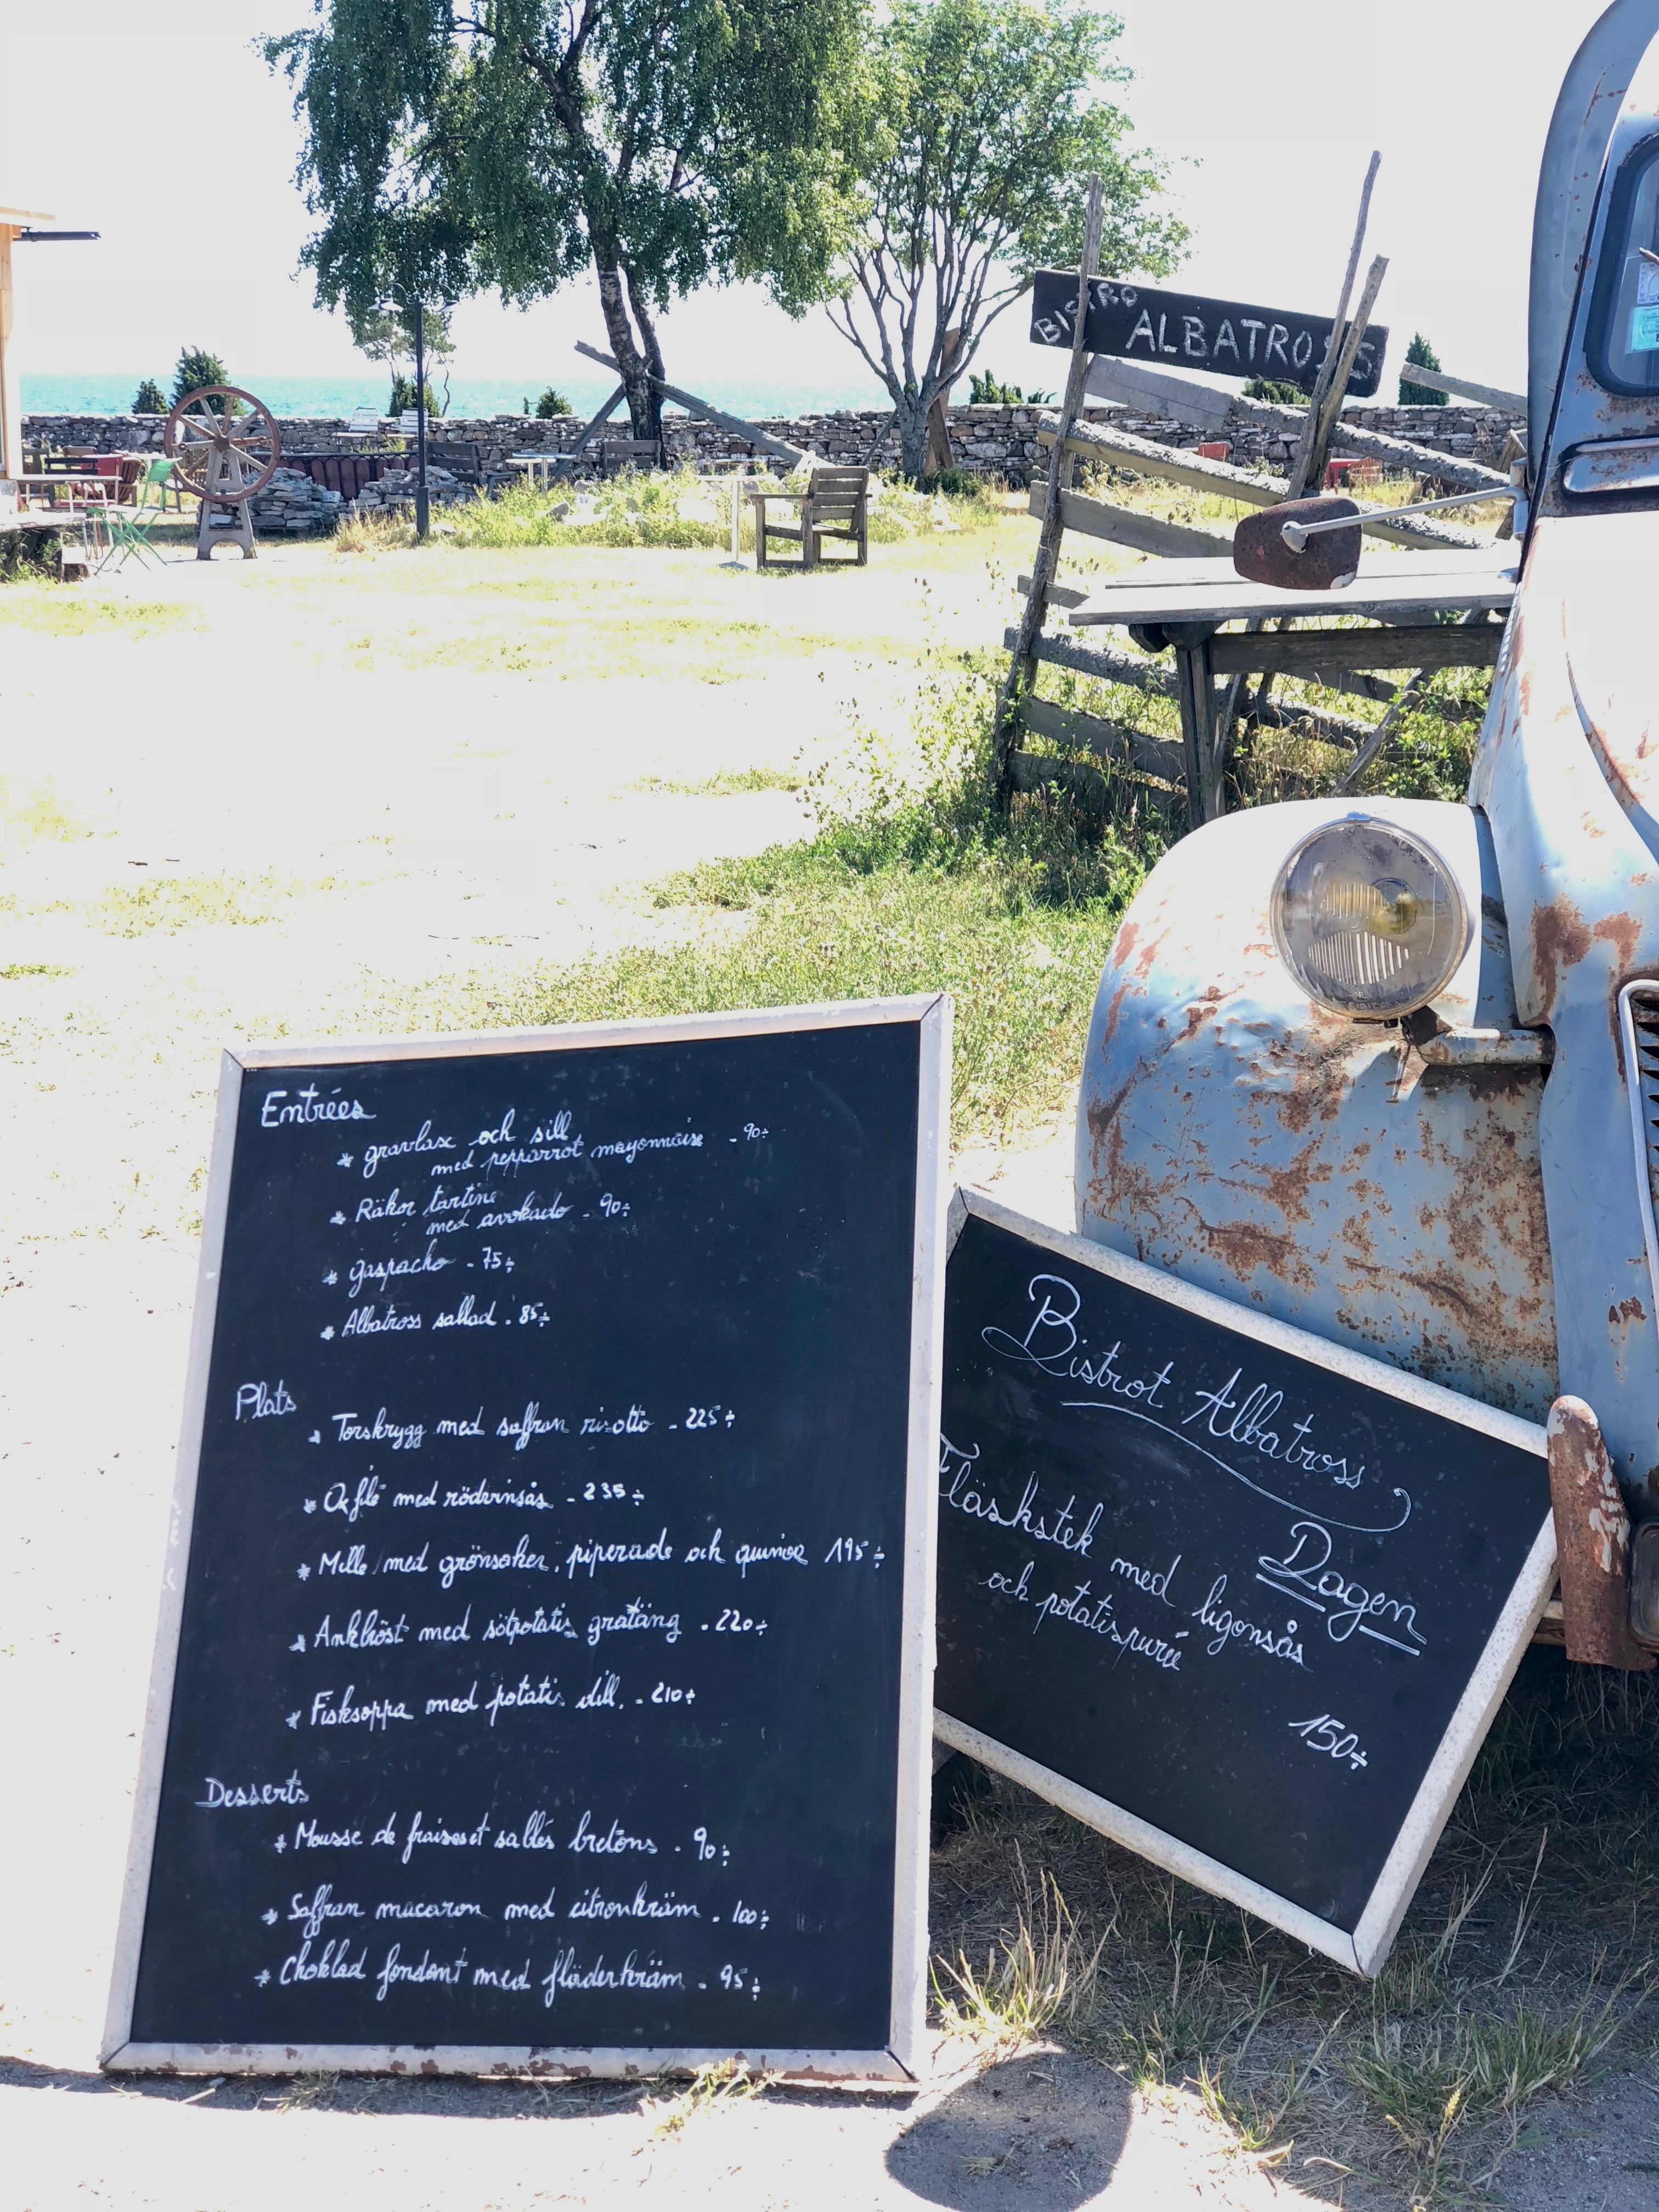 BISTRO
ALBATROSS
Entrées
* gravlax och sill
med pepparrot mayonnaise - 90:-
* Räkor tartine
med avokado - 90:-
* gaspacho - 75:-
* Albatross sallad - 85:-
Plats
* Torskrygg med saffran risotto - 225:-
* Oxfilé med rödvinsås - 235:-
* Mille med grönsaker, piperade och quinoa 195:-
* Ankbröst med sötpotatis gratäng - 220:-
* Fisksoppa med potatis dill. - 210:-
Desserts
* Mousse de fraises et sablés bretons - 90:-
* Saffran macaron med citronkräm - 100:-
* Choklad fondant med fläderkräm - 95:-
Bistrot Albatross
Dagen
Fläskstek med ligonsås
och potatispurée
150:-